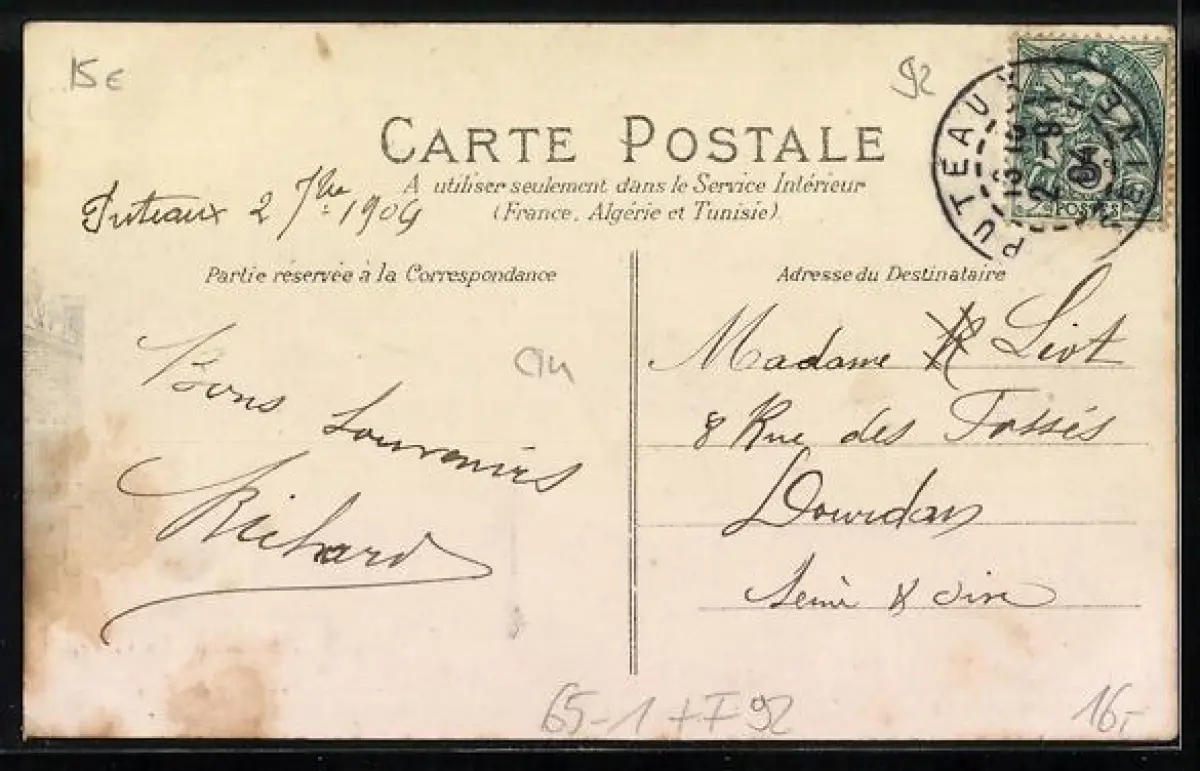 15€
92
CARTE POSTALE
A utiliser seulement dans le Service Intérieur
(France, Algérie et Tunisie)
Puteaux 2 7bre 1904
PUTEAUX
SEINE
2 -9
04
POSTES
Partie réservée à la Correspondance
Adresse du Destinataire
Bons Souvenirs
Richard
Madame Liot
8 Rue des Fossés
Dourdan
Seine & Oise
65-1 + F 92
16,-